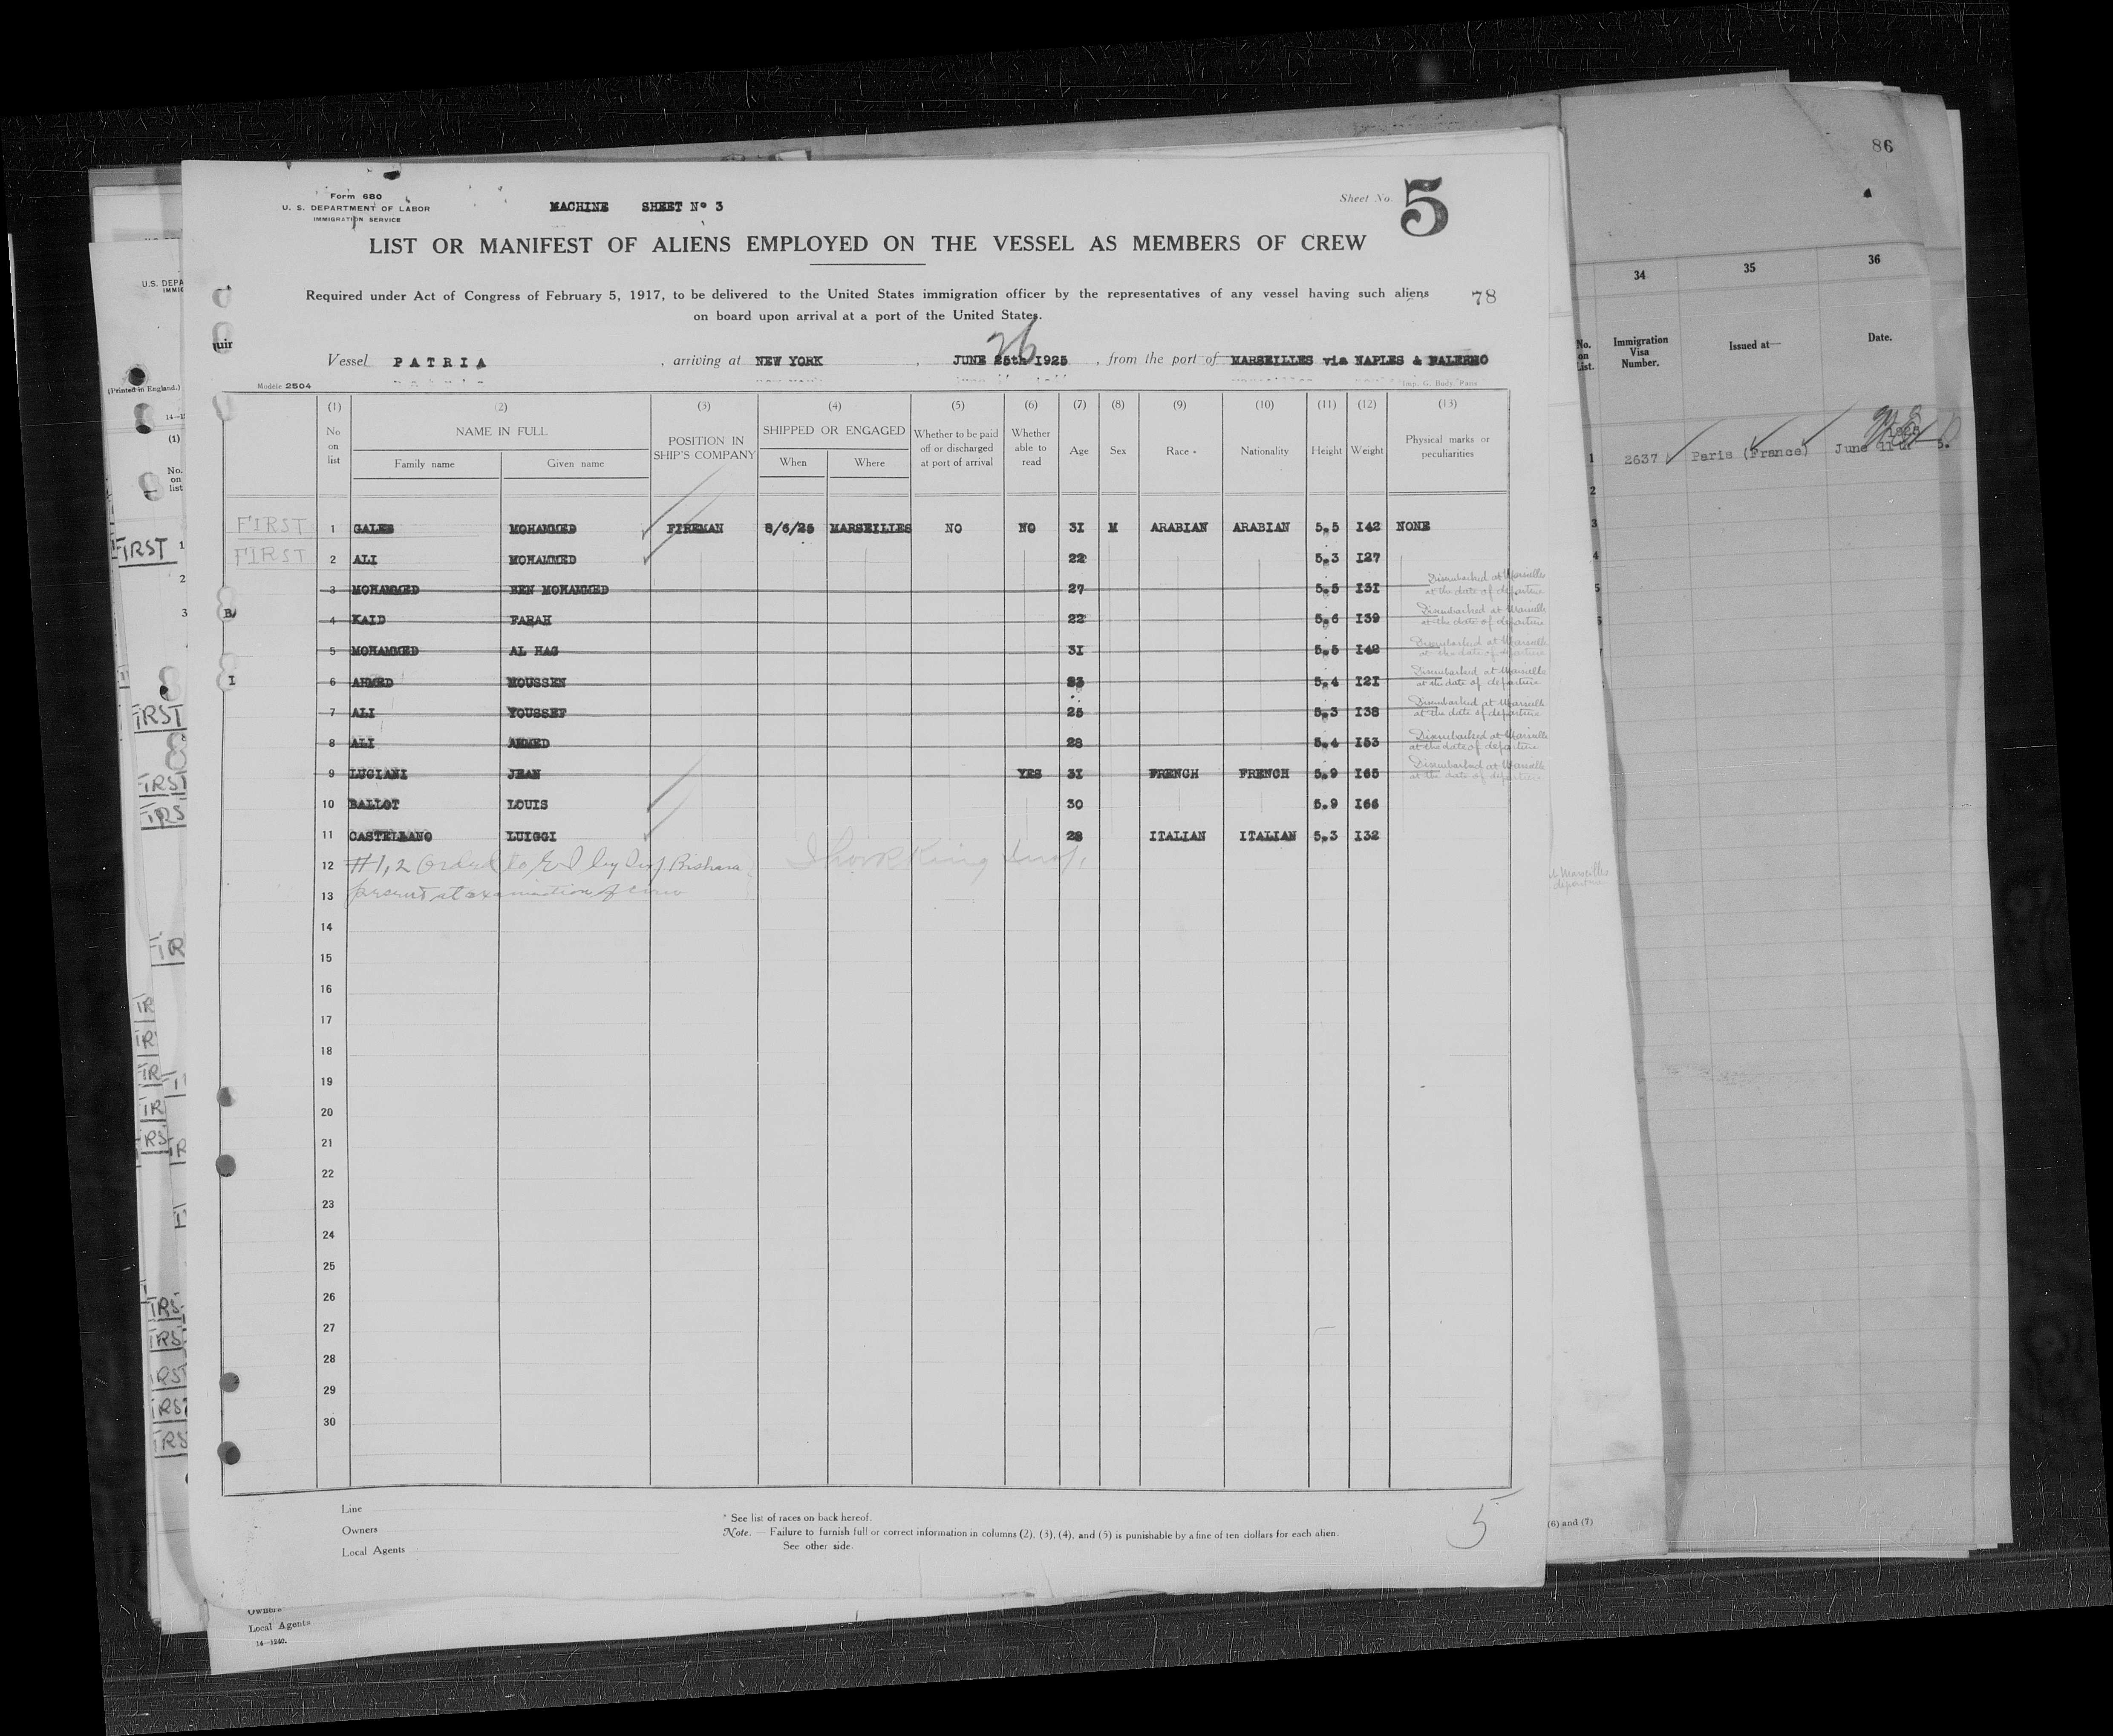 Form 680
U. S. DEPARTMENT OF LABOR
IMMIGRATION SERVICE
MACHINE SHEET No 3
Sheet No. 5
LIST OR MANIFEST OF ALIENS EMPLOYED ON THE VESSEL AS MEMBERS OF CREW
Required under Act of Congress of February 5, 1917, to be delivered to the United States immigration officer by the representatives of any vessel having such aliens
on board upon arrival at a port of the United States.
78
Vessel PATRIA, arriving at NEW YORK, JUNE 25th 1925, from the port of MARSEILLES via NAPLES & PALERMO
26
Modèle 2504
Imp. G. Budy Paris
(1) (2) (3) (4) (5) (6) (7) (8) (9) (10) (11) (12) (13)
No on list
NAME IN FULL
Family name Given name
POSITION IN SHIP'S COMPANY
SHIPPED OR ENGAGED
When Where
Whether to be paid off or discharged at port of arrival
Whether able to read
Age Sex Race * Nationality Height Weight
Physical marks or peculiarities
FIRST 1 GALES MOHAMMED FIREMAN 8/6/25 MARSEILLES NO NO 3I M ARABIAN ARABIAN 5.5 I42 NONE
FIRST 2 ALI MOHAMMED 22 5.3 I27
3 MOHAMMED BEN MOHAMMED 27 5.5 I3I Disembarked at Marseilles at the date of departure
4 KAID FARAH 22 5.6 I39 Disembarked at Marseille at the date of departure
5 MOHAMMED AL HAG 3I 5.5 I42 Disembarked at Marseille at the date of departure
6 AHMED MOUSSEN 23 5.4 I2I Disembarked at Marseille at the date of departure
7 ALI YOUSSEF 25 5.3 I38 Disembarked at Marseille at the date of departure
8 ALI AHMED 28 5.4 I53 Disembarked at Marseille at the date of departure
9 LUCIANI JEAN YES 3I FRENCH FRENCH 5.9 I65 Disembarked at Marseille at the date of departure
10 BALLOT LOUIS 30 5.9 I66
11 CASTELLANO LUIGGI 28 ITALIAN ITALIAN 5.3 I32
12 #1,2 Ordered to E I by Insp Bishara
13 present at examination of crew
14
15
16
17
18
19
20
21
22
23
24
25
26
27
28
29
30
Line
Owners
Local Agents
* See list of races on back hereof.
Note. — Failure to furnish full or correct information in columns (2), (3), (4), and (5) is punishable by a fine of ten dollars for each alien.
See other side.
5
86
34 35 36
No. on List.
Immigration Visa Number.
Issued at—
Date.
1 2637 Paris (France) June 11th
2
3
4
(6) and (7)
U.S. DEPA
(Printed in England.)
(1)
No. on list
FIRST 1
2
3
Owners
Local Agents
14—1240.